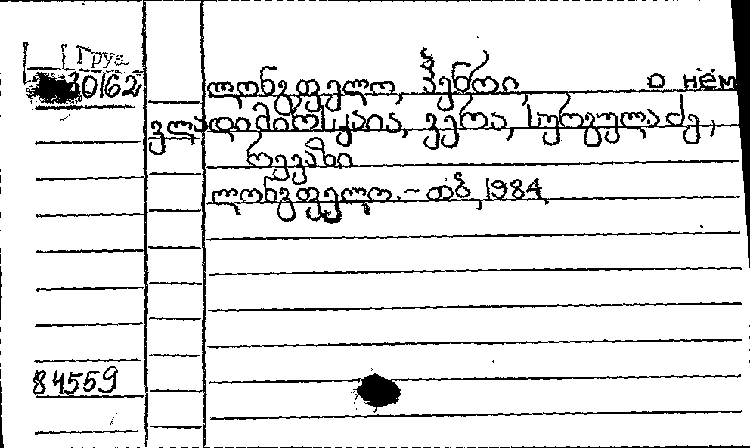 Груз
30162
ლონგფელო, ჰენრი, о нём
ვლადიმირსკაია, ვერა, სურგულაძე,
რევაზი
ლონგფელო. – თბ., 1984
84559